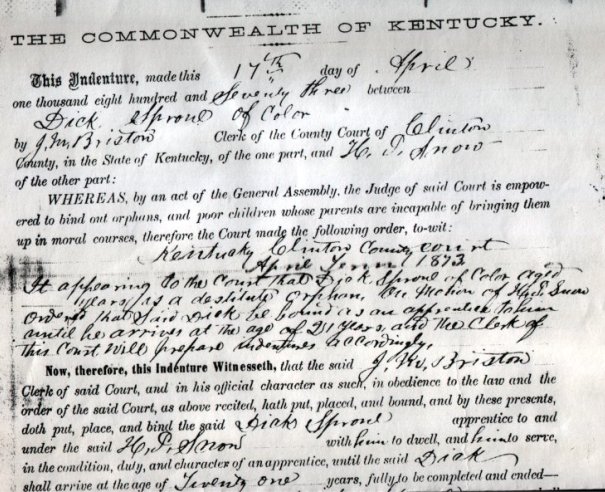 THE COMMONWEALTH OF KENTUCKY.
This Indenture, made this 17th day of April
one thousand eight hundred and Seventy three between
Dick Sproul of Color
by J. M. Briston Clerk of the County Court of Clinton
County, in the State of Kentucky, of the one part, and H. P. Snow
of the other part:
WHEREAS, by an act of the General Assembly, the Judge of said Court is empow-
ered to bind out orphans, and poor children whose parents are incapable of bringing them
up in moral courses, therefore the Court made the following order, to-wit:
Kentucky Clinton County court
April Term 1873
It appearing to the Court that Dick Sproul of Color aged
years, is a destitute orphan, On Motion of H. P. Snow
Ordered that Said Dick be bound as an apprentice to him
until he arrives at the age of 21 years, and the Clerk of
this Court will prepare indentures accordingly.
Now, therefore, this Indenture Witnesseth, that the said J. M. Briston
Clerk of said Court, and in his official character as such, in obedience to the law and the
order of the said Court, as above recited, hath put, placed, and bound, and by these presents,
doth put, place, and bind the said Dick Sproul apprentice to and
under the said H. P. Snow with him to dwell, and him to serve,
in the condition, duty, and character of an apprentice, until the said Dick
shall arrive at the age of Twenty one years, fully to be completed and ended—